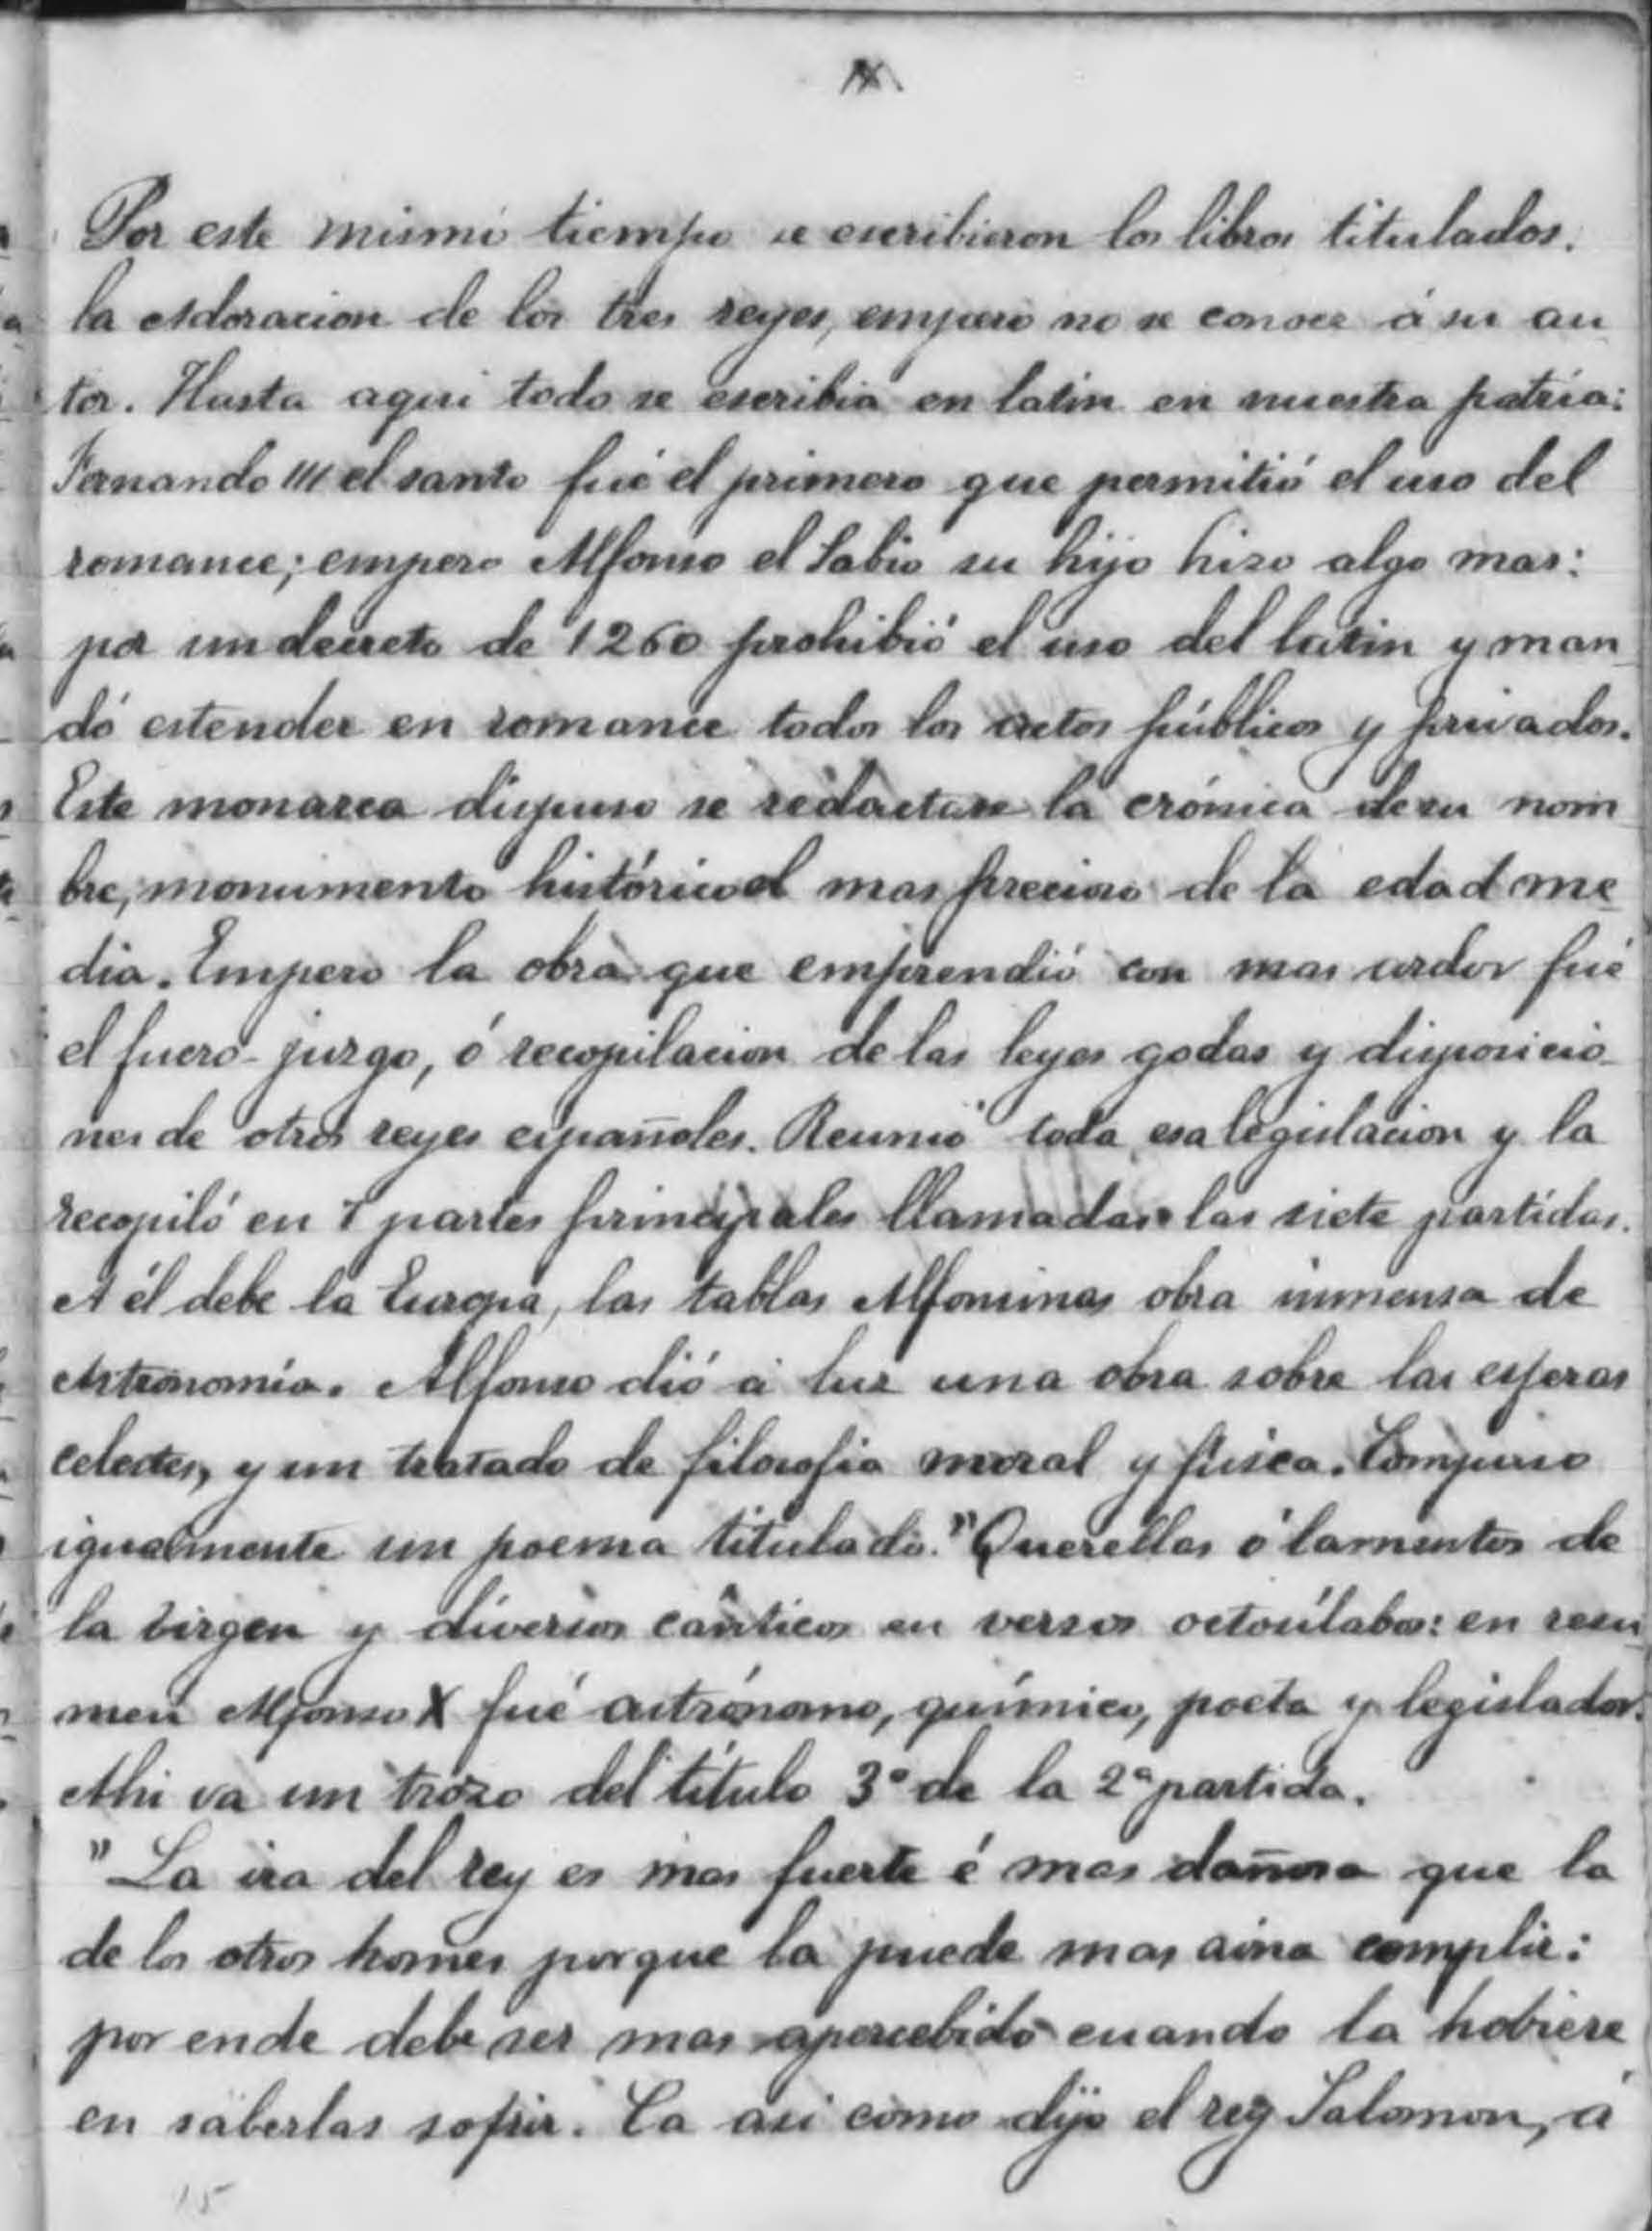 Por este mismo tiempo se escribieron los libros titulados.
la Adoracion de los tres reyes, empero no se conoce á su au
tor. Hasta aqui todo se escribia en latin en nuestra patria:
Fernando III el santo fué el primero que permitió el uso del
romance; empero Alfonso el Sabio su hijo hizo algo mas:
por un decreto de 1260 prohibió el uso del latin y man
dó estender en romance todos los actos públicos y privados.
Este monarca dispuso se redactase la crónica de su nom
bre, monumento histórico el mas precioso de la edad me
dia. Empero la obra que emprendió con mas ardor fué
el fuero-juzgo, ó recopilacion de las leyes godas y disposicio-
nes de otros reyes españoles. Reunió toda esa legislacion y la
recopiló en 7 partes principales llamadas las siete partidas.
A él debe la Europa, las tablas Alfonsinas obra inmensa de
Astronomía. Alfonso dió á luz una obra sobre las esferas
celestes, y un tratado de filosofia moral y física. Compuso
igualmente un poema titulado. "Querellas ó lamentos de
la Virgen y diversos cánticos en versos octosílabos: en resu
men Alfonso X fué astrónomo, químico, poeta y legislador.
Ahi va un trozo del título 3º de la 2ª partida.
"La ira del rey es mas fuerte é mas dañosa que la
de los otros homes porque la puede mas aina complir:
por ende debe ser mas apercebido cuando la hobiere
en saberlas sofrir. Ca asi como dijo el rey Salomon, á
15